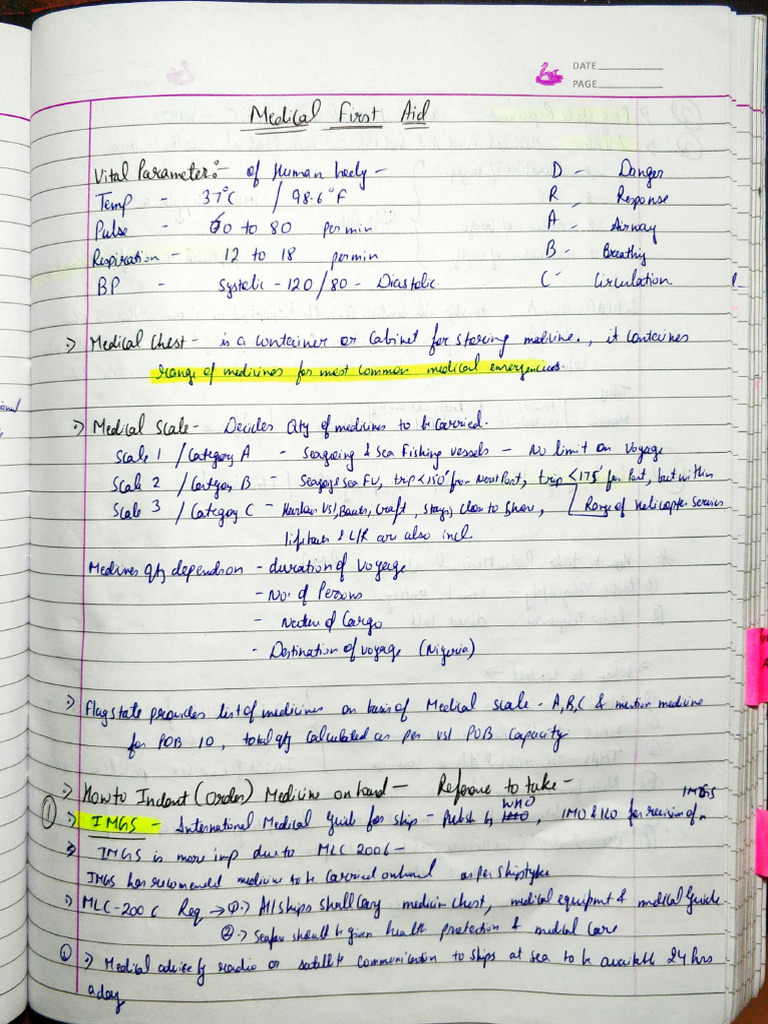 DATE
PAGE
Medical First Aid
Vital Parameter:- of Human body -
D - Danger
Temp - 37°C / 98.6°F
R - Response
Pulse - 60 to 80 per min
A - Airway
Respiration - 12 to 18 per min
B - Breathing
BP - Systolic - 120/80 - Diastolic
C - Circulation
:) Medical Chest - is a container or Cabinet for storing medicine., it containes
range of medicines for most common medical emergencies.
:) Medical Scale - Decides Qty of medicines to be carried.
Scale 1 / Category A - Seagoing & Sea Fishing vessels - No limit on Voyage
Scale 2 / Category B - Sea FV, trip <150' from Port, trip <175' for Port, but within
Scale 3 / Category C - Harbour Vsl, Boats, Craft, Stays close to Shore, Range of Helicopter Services
lifeboats & L/R are also incl.
Medicines qty depends on - duration of Voyage
- No. of Persons
- Nature of Cargo
- Destination of voyage (Nigeria)
:) Flag state provides list of medicines on basis of Medical scale - A, B, C & mention medicine
for POB 10, total qty calculated as per vsl POB Capacity
:) How to Indent (Order) Medicine onboard - Reference to take -
① :) IMGS - International Medical Guide for ship - Publish by WHO, IMO & ILO for revision of IMGS
:) IMGS is more imp due to MLC 2006 -
IMGS has recommended medicine to be Carried onboard as per shiptype
:) MLC-2006 Req → ①:) All ships shall Carry medicin chest, medical equipmt & medical Guide
②:) Seafarer should be given health protection & medical Care
② :) Medical advice by radio or satellite Communication to ships at sea to be available 24 hrs
a day